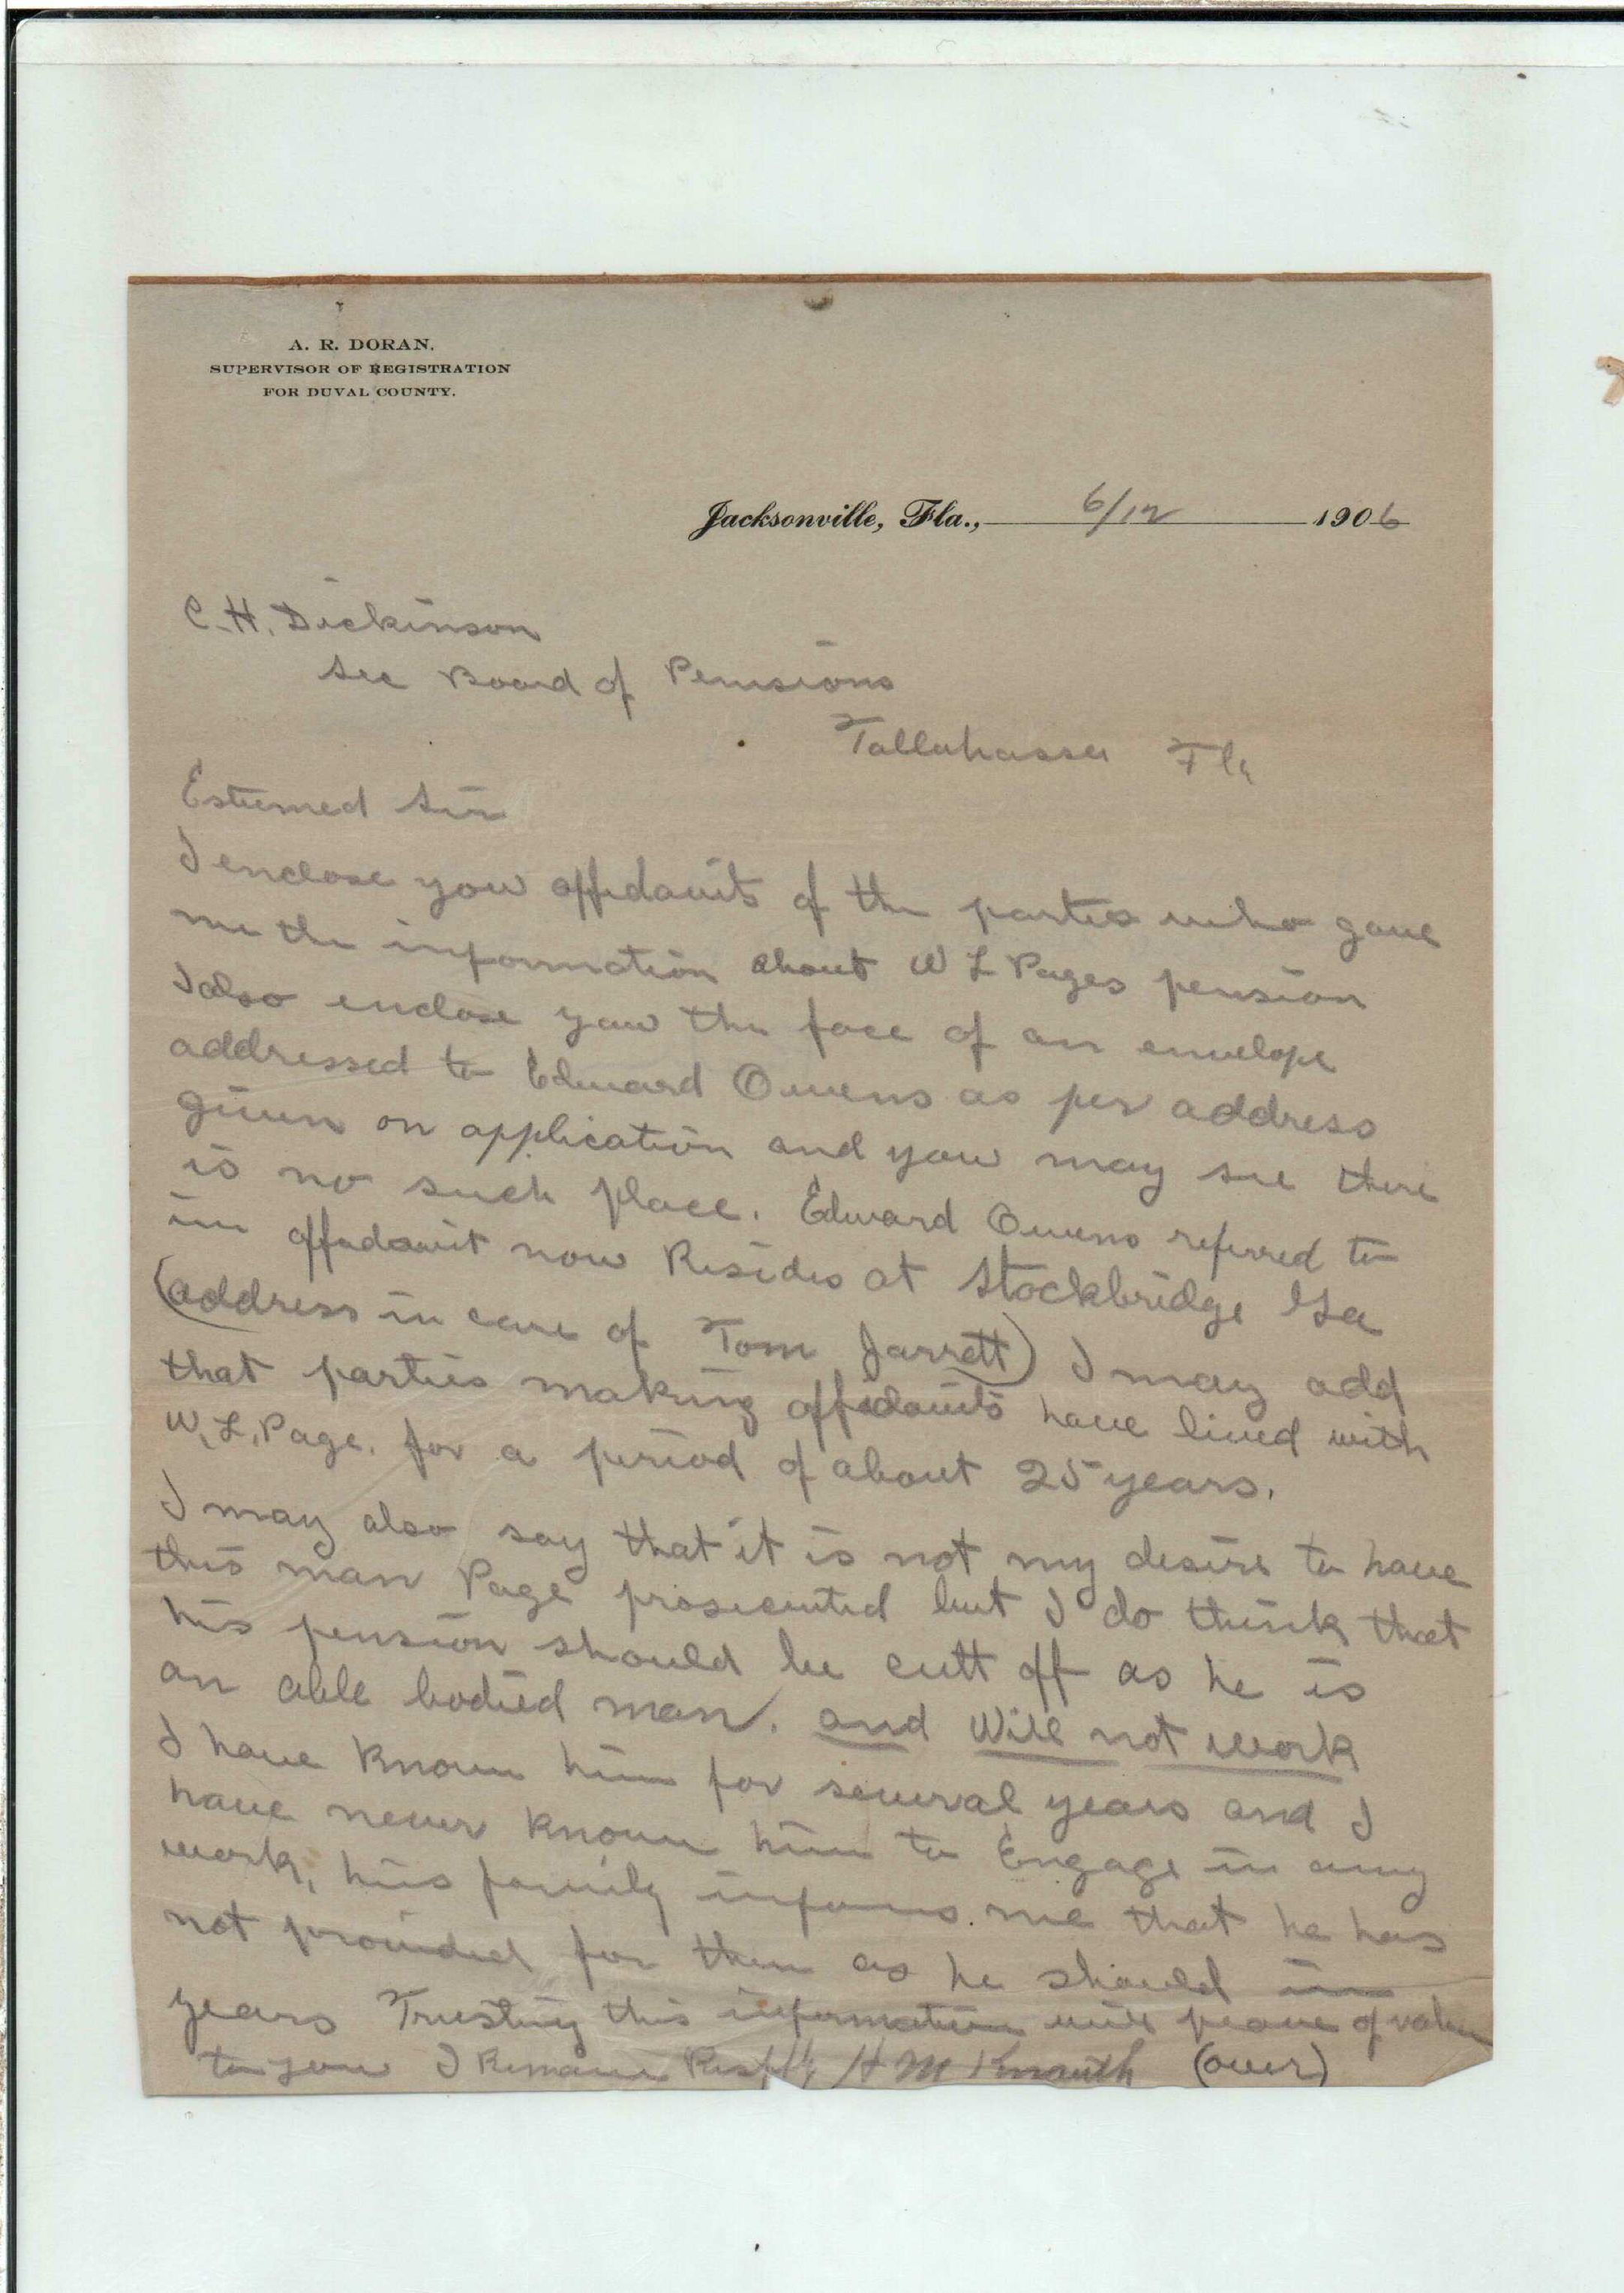 A. R. DORAN.
SUPERVISOR OF REGISTRATION
FOR DUVAL COUNTY.
Jacksonville, Fla., 6/12 1906
C. H. Dickinson
Sec Board of Pensions
Tallahassee Fla
Esteemed Sir
I enclose you affidavits of the parties who gave
me the information about W L Pages pension
I also enclose you the face of an envelope
addressed to Edward Owens as per address
given on application and you may see there
is no such place. Edward Owens referred to
in affadavit now Resides at Stockbridge Ga
(address in care of Tom Jarrett) I may add
that parties making affidavits have lived with
W. L. Page. for a period of about 25 years.
I may also say that it is not my desire to have
this man Page prosecuted but I do think that
his pension should be cutt off as he is
an able bodied man. and Will not work
I have Known him for several years and I
have never Known him to Engage in any
work, his family informs me that he has
not provided for them as he should in
years Trusting this information will prove of value
to you I Remain Respflly H M (over)